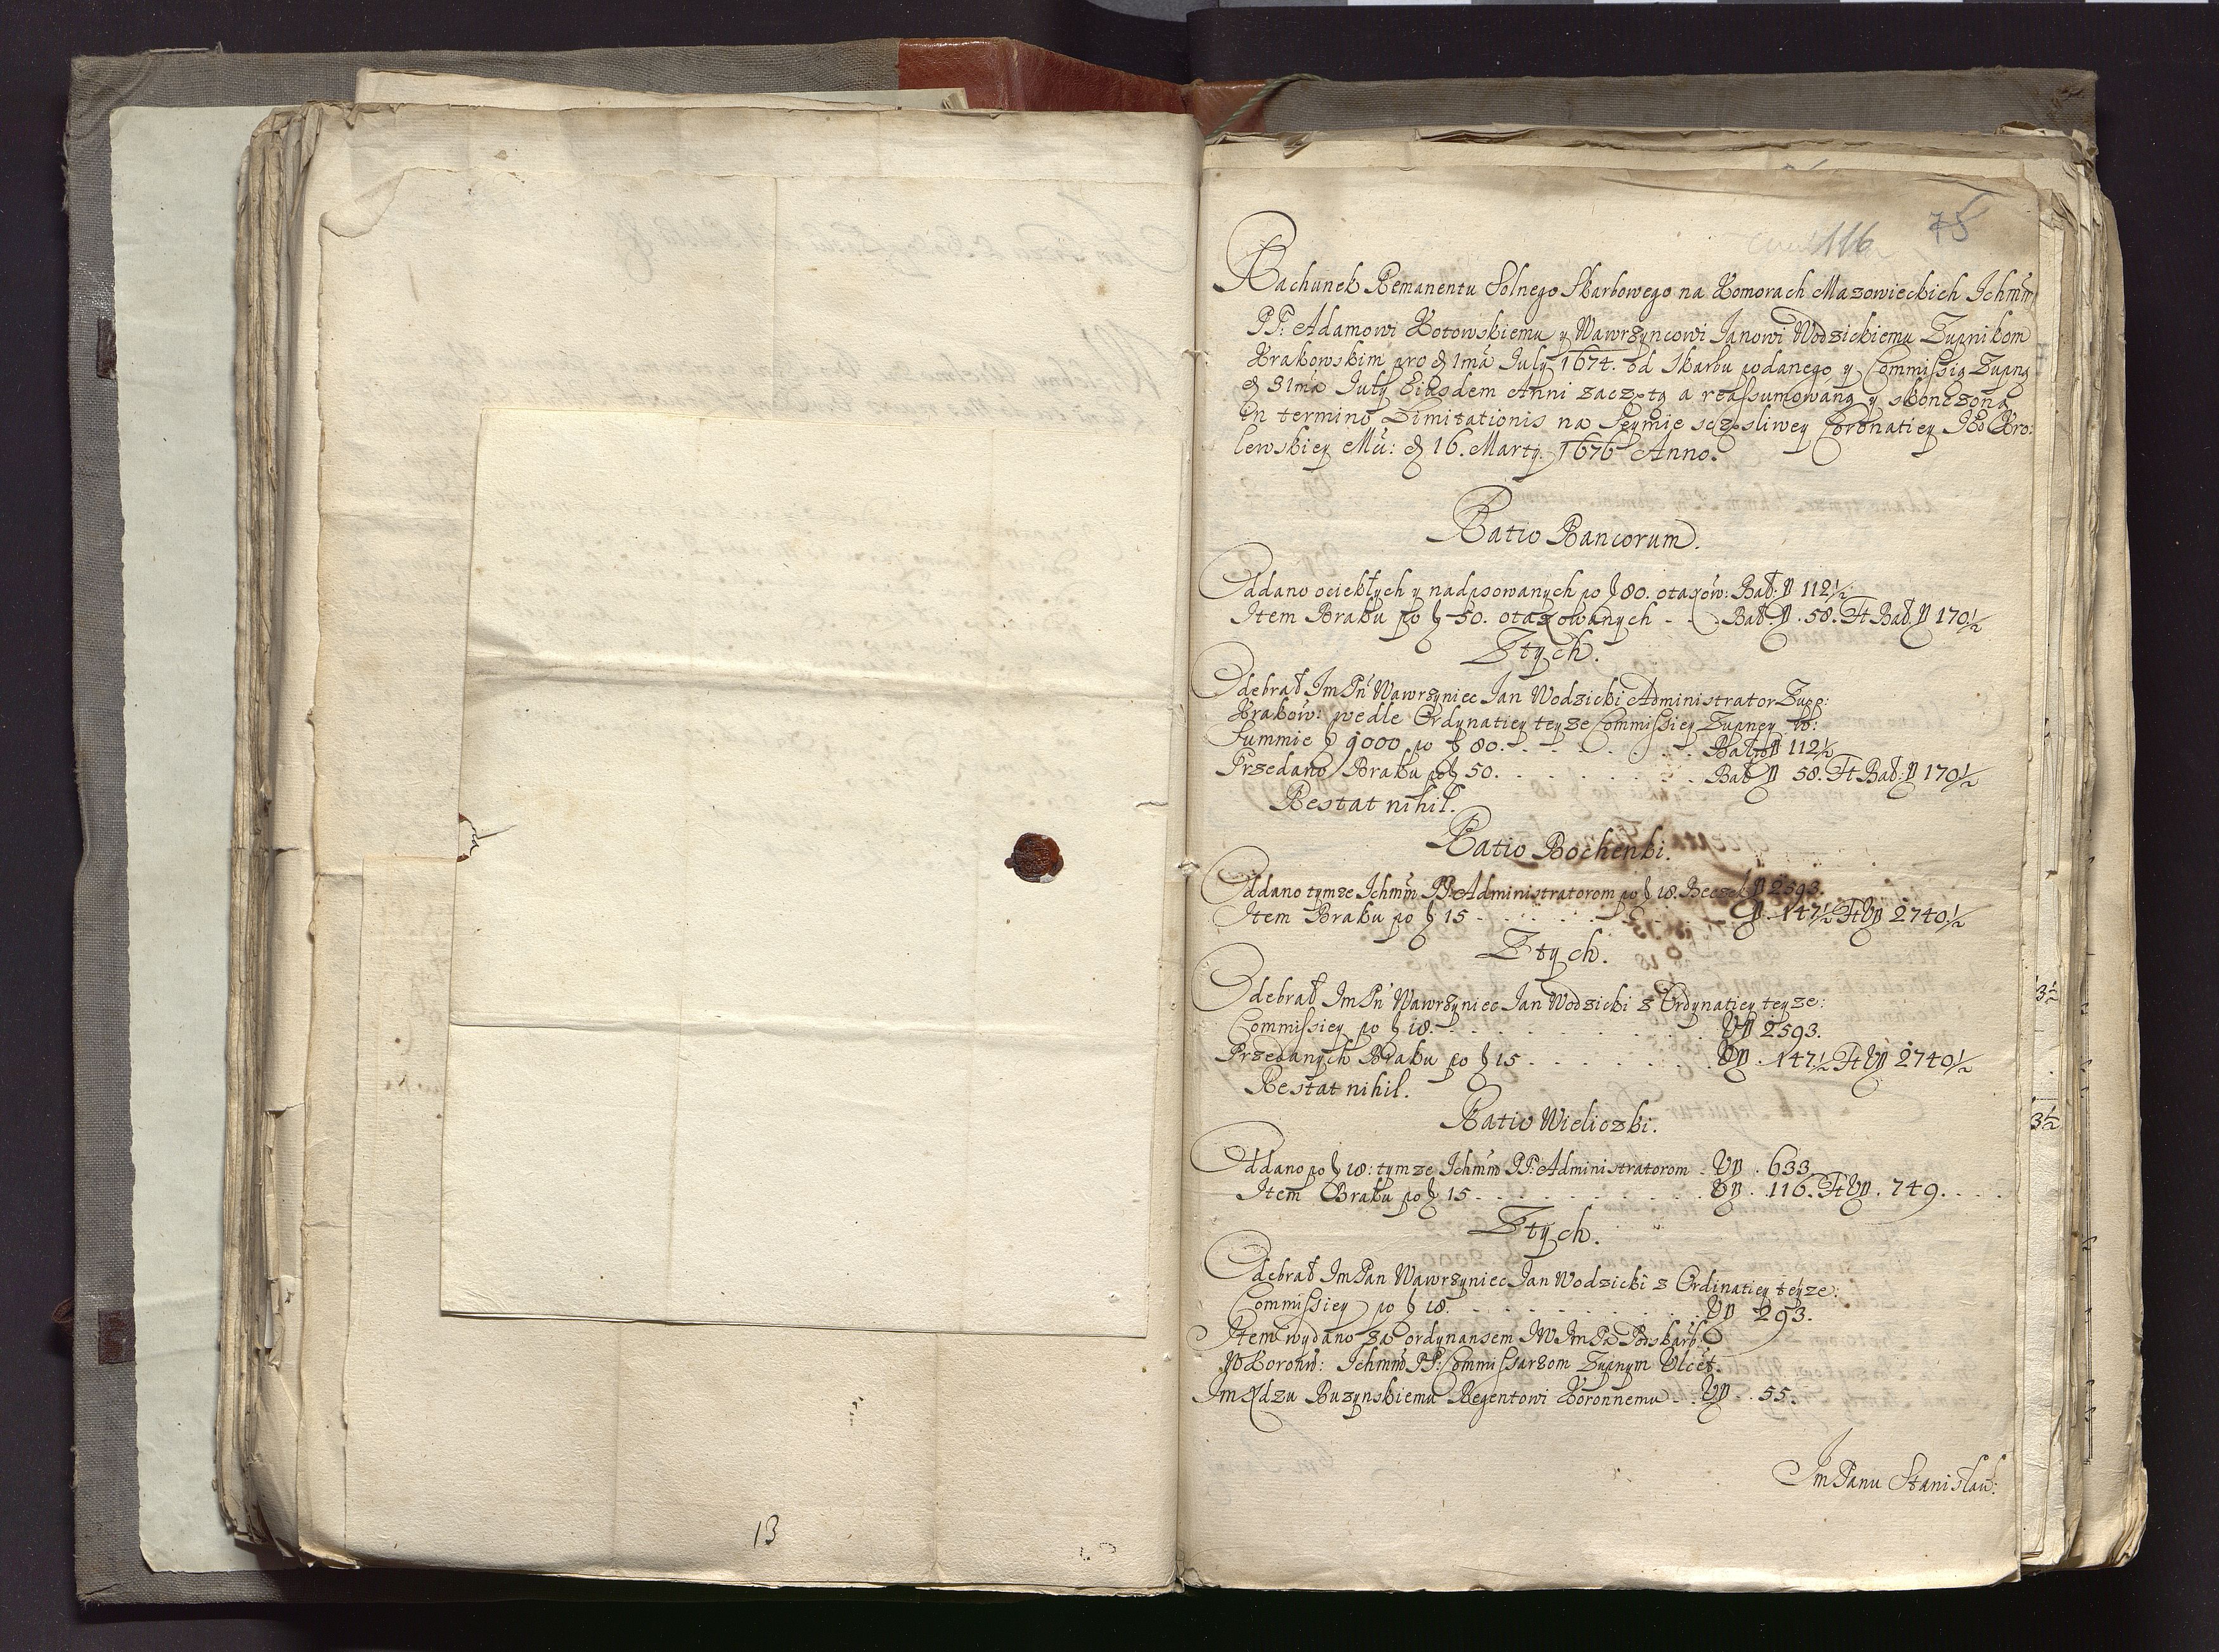 116 75
Rachunek Remanentu Solnego Skarbowego na Komorach Mazowieckich Ichmm
PP: Adamowi Kotowskiemu y Wawrzyncowi Janowi Wodzickiemu Zupnikom
Krakowskim pro d 1ma July 1674. od Skarbu podanego y Commissią Zupną
d 31ma July Eiusdem Anni zaczętą a reassumowaną y skonczoną
in termino Limitationis na Seymie sczęsliwey Coronatiey JKo Kro:
lewskiey Mci: d 16. Marty 1676 Anno.
Ratio Bancorum.
Oddano ociekłych y nadpsowanych po f 80. otaxow: Bał: N 112½
Item Braku po f 50. otaxowanych - - Bał. N. 58. Ft Bał. N 170½
Z tych.
Odebrał Im Pn Wawrzyniec Jan Wodzicki Administrator Zupp:
Krakow: wedle Ordynatiey teyze Commissiey Zupney w:
Summie f 9000 po f 80. - - - - - Bał N 112½
Przedano Braku po f 50. . . . . . . Bał N 58. Ft Bał: N 170½
Restat nihil.
Ratio Bochenki.
Oddano tymze Ichmm PP Administratorom po f 18. Beczek N 2593.
Item Braku po f 15 - - - - - - N. 147½ Ft N 2740½
Z tych.
Odebrał Im Pn Wawrzyniec Jan Wodzicki z Ordynatiey teyze:
Commissiey po f 18. - - - - - - N 2593.
Przedanych Braku po f 15 - - - - - - N. 147½ Ft N 2740½
Restat nihil.
Ratio Wieliczki.
Oddano po f 18: tymze Ichmm PP: Administratorom - N. 633.
Item Braku po f 15 - - - - - - N. 116. Ft N. 749. - - -
Z tych.
Odebrał Im Pan Wawrzyniec Jan Wodzicki z Ordinatiey teyze:
Commissiey po f 18. - - - - - - N 293.
Item wydano za ordynansem JW Im Pa Podskarb:
W Koronn: Ichmm PP: Commissarzom Zupnym
Im Xdzu Buzynskiemu Regentowi Koronnemu - - N. 55.
Im Panu Stanisław:
3½
3½
13